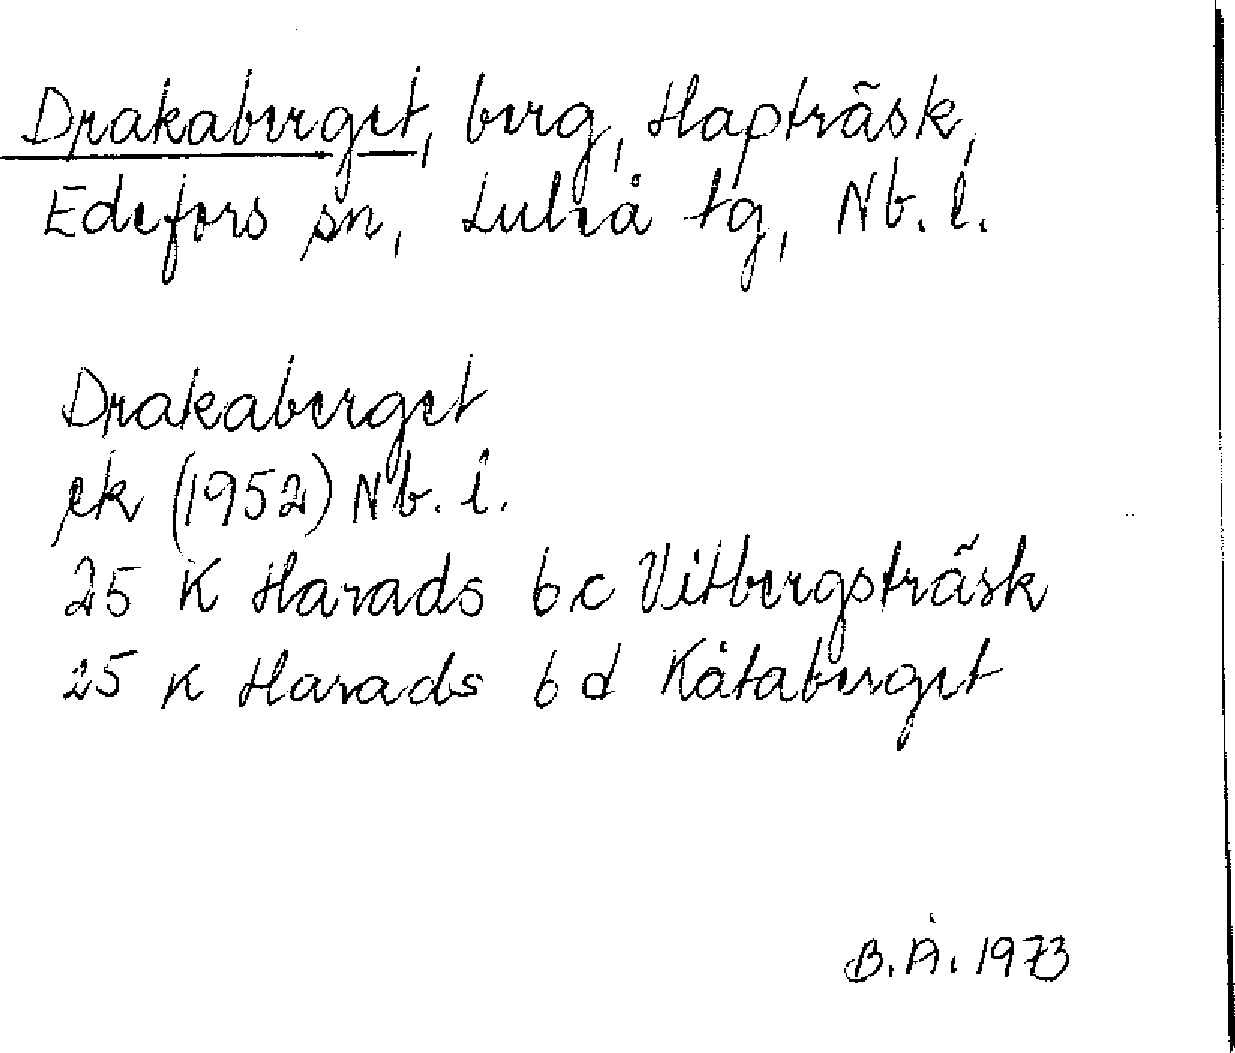 Drakaberget, berg, Hapträsk,
Edefors sn, Luleå tg, Nb. l.
Drakaberget
ek (1952) Nb. l.
25 K Harads 6 c Vitbergsträsk
25 K Harads 6 d Kåtaberget
B. Å. 1973